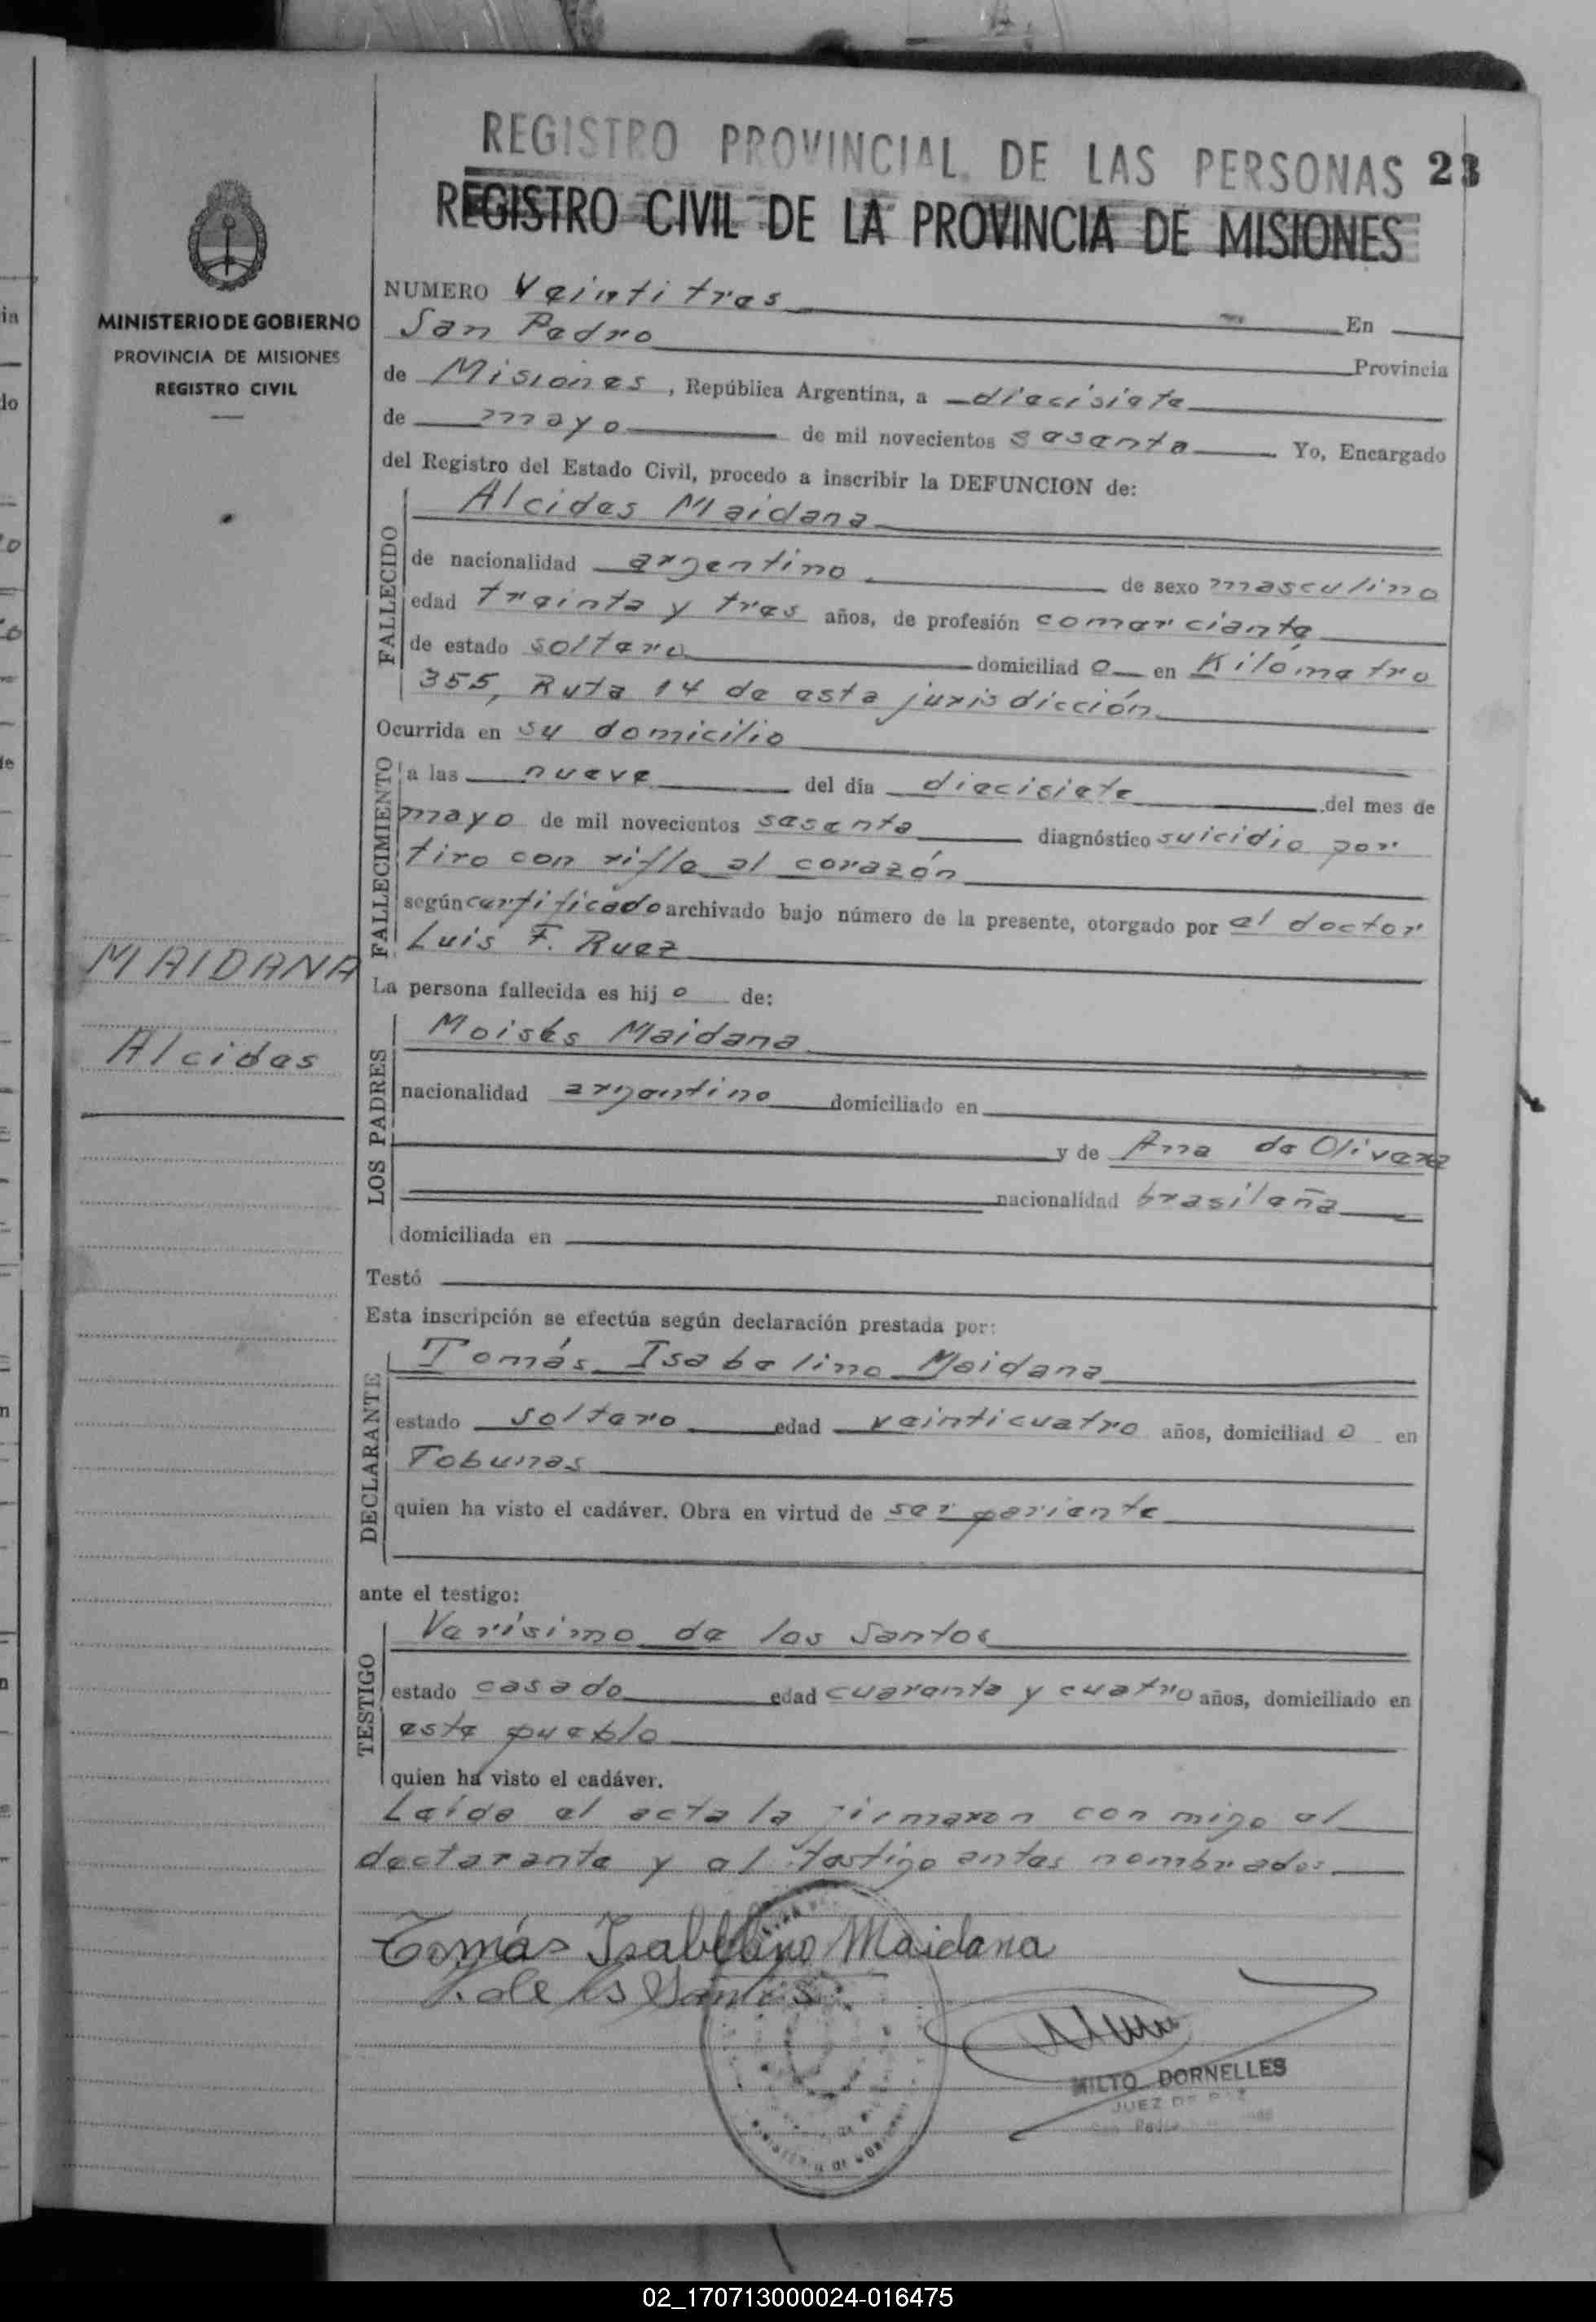 REGISTRO PROVINCIAL DE LAS PERSONAS 23
REGISTRO CIVIL DE LA PROVINCIA DE MISIONES
MINISTERIO DE GOBIERNO
PROVINCIA DE MISIONES
REGISTRO CIVIL
MAIDANA
Alcides
NUMERO Veintitres En
San Pedro Provincia
de Misiones, República Argentina, a diecisiete
de mayo de mil novecientos sesenta Yo, Encargado
del Registro del Estado Civil, procedo a inscribir la DEFUNCION de:
FALLECIDO
Alcides Maidana
de nacionalidad argentino de sexo masculino
edad treinta y tres años, de profesión comerciante
de estado soltero domiciliado en Kilómetro
355, Ruta 14 de esta jurisdicción
Ocurrida en su domicilio
FALLECIMIENTO
a las nueve del día diecisiete del mes de
mayo de mil novecientos sesenta diagnóstico suicidio por
tiro con rifle al corazón
según certificado archivado bajo número de la presente, otorgado por el doctor
Luis F. Ruez
La persona fallecida es hijo de:
LOS PADRES
Moisés Maidana
nacionalidad argentino domiciliado en
y de Ana de Olivera
nacionalidad brasileña
domiciliada en
Testó
Esta inscripción se efectúa según declaración prestada por:
DECLARANTE
Tomás Isabelino Maidana
estado soltero edad veinticuatro años, domiciliado en
Tobunas
quien ha visto el cadáver. Obra en virtud de ser pariente
ante el testigo:
TESTIGO
Verísimo de los Santos
estado casado edad cuarenta y cuatro años, domiciliado en
este pueblo
quien ha visto el cadáver.
Leída el acta la firmaron conmigo el
declarante y el testigo antes nombrados
Tomás Isabelino Maidana
V. de los Santos
MILTO DORNELLES
JUEZ DE PAZ
San Pedro
02_170713000024-016475